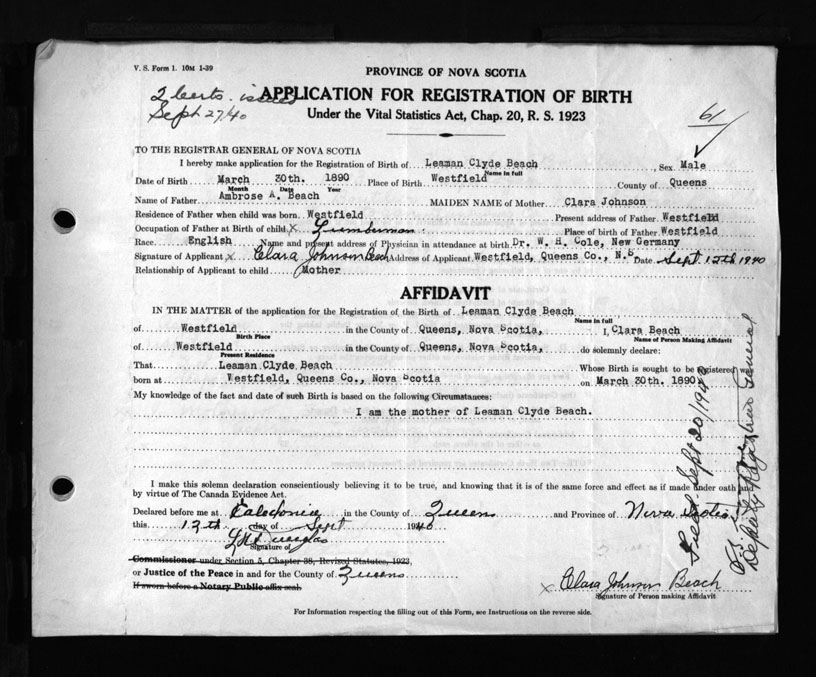 V. S. Form 1. 10M 1-39
PROVINCE OF NOVA SCOTIA
2 Certs. issued
Sept 27/40
APPLICATION FOR REGISTRATION OF BIRTH
Under the Vital Statistics Act, Chap. 20, R. S. 1923
61
TO THE REGISTRAR GENERAL OF NOVA SCOTIA
I hereby make application for the Registration of Birth of Leaman Clyde Beach, Sex Male
Name in full
Date of Birth March 30th. 1890 Place of Birth Westfield County of Queens
Month Date Year
Name of Father Ambrose A. Beach MAIDEN NAME of Mother Clara Johnson
Residence of Father when child was born Westfield Present address of Father Westfield
Occupation of Father at Birth of child X Lumberman Place of birth of Father Westfield
Race English Name and present address of Physician in attendance at birth Dr. W. H. Cole, New Germany
Signature of Applicant X Clara Johnson Beach Address of Applicant Westfield, Queens Co., N.S. Date Sept. 12th 1940
Relationship of Applicant to child Mother
AFFIDAVIT
IN THE MATTER of the application for the Registration of the Birth of Leaman Clyde Beach
Name in full
of Westfield in the County of Queens, Nova Scotia, I, Clara Beach
Birth Place Name of Person Making Affidavit
of Westfield in the County of Queens, Nova Scotia, do solemnly declare:
Present Residence
That Leaman Clyde Beach Whose Birth is sought to be registered was
born at Westfield, Queens Co., Nova Scotia on March 30th. 1890
My knowledge of the fact and date of such Birth is based on the following Circumstances:
I am the mother of Leaman Clyde Beach.
I make this solemn declaration conscientiously believing it to be true, and knowing that it is of the same force and effect as if made under oath and
by virtue of The Canada Evidence Act.
Declared before me at Caledonia in the County of Queens and Province of Nova Scotia
this 12th day of Sept 1940
Signature of
Commissioner under Section 5, Chapter 38, Revised Statutes, 1923,
or Justice of the Peace in and for the County of Queens
If sworn before a Notary Public affix seal.
X Clara Johnson Beach
Signature of Person making Affidavit
For Information respecting the filling out of this Form, see Instructions on the reverse side.
Filed Sept 20/1940
Deputy Registrar General